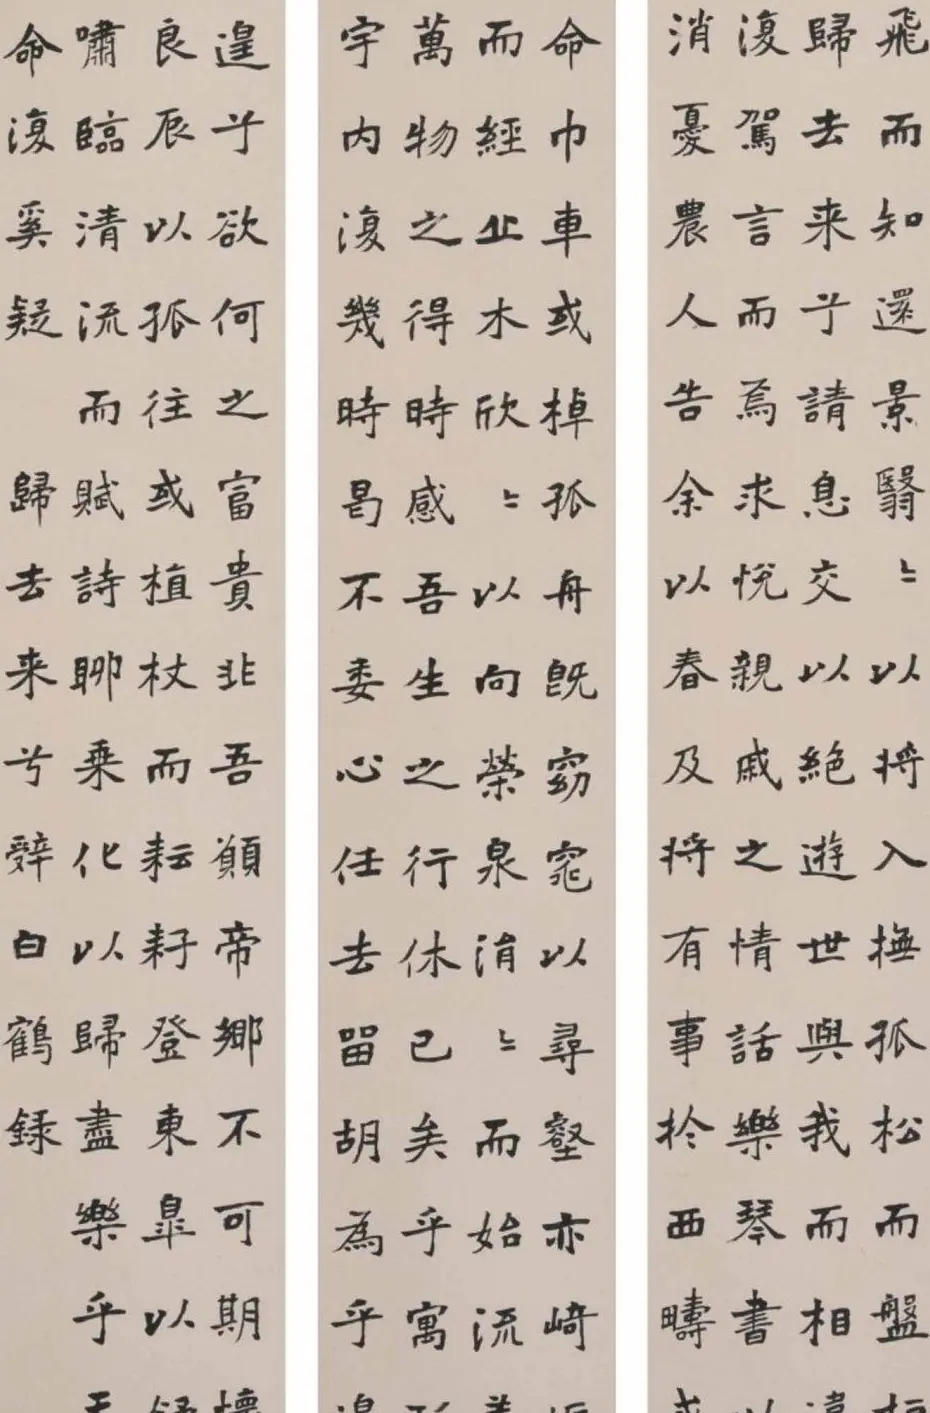 飛而知還景翳〻以将入撫孤松而盤桓
歸去来兮請息交以絶遊世與我而相違
復駕言而焉求悅親戚之情話樂琴書以
消憂農人告余以春及将有事於西疇或
命巾車或棹孤舟既窈窕以尋壑亦崎
而經丘木欣〻以向榮泉涓〻而始流善
萬物之得時感吾生之行休已矣乎寓形
宇内復幾時曷不委心任去留胡為乎遑
遑兮欲何之富貴非吾願帝郷不可期懷
良辰以孤往或植杖而耘耔登東皐以
嘯臨清流而賦詩聊乗化以歸盡樂乎天
命復奚疑 歸去来兮辭白鶴録